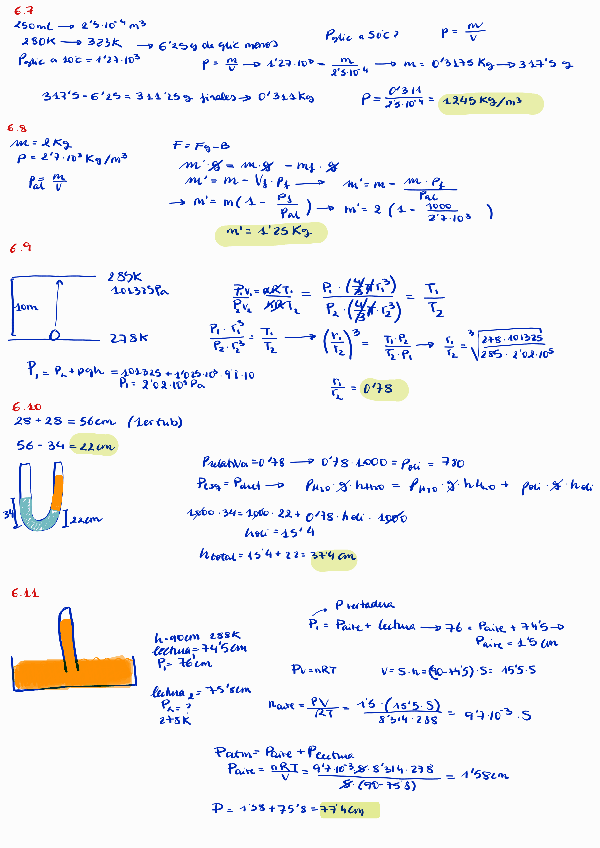 6.7
250mL → 2'5·10⁻⁴ m³
280K → 323K → 6'25g de glic menos
Pglic a 50ºC? P = m/V
Pglic a 10ºC = 1'27·10³ P = m/V → 1'27·10³ = m/2'5·10⁻⁴ → m = 0'3175 Kg → 317'5 g
317'5 - 6'25 = 311'25g finales → 0'311Kg P = 0'311/2'5·10⁻⁴ = 1245 Kg/m³
6.8
m = 2Kg F = Fg - B
P = 2'7·10³ Kg/m³ m'·g = m·g - mf·g
Pal = m/V m' = m - Vf·Pf → m' = m - m·Pf/Pal
→ m' = m(1 - Pf/Pal) → m' = 2 (1 - 1000/2'7·10³)
m' = 1'25 Kg
6.9
285K
101325Pa
10m
278K
P₁V₁/P₂V₂ = nRT₁/nRT₂ = P₁·(4/3 π r₁³)/P₂·(4/3 π r₂³) = T₁/T₂
P₁·r₁³/P₂·r₂³ = T₁/T₂ → (r₁/r₂)³ = T₁·P₂/T₂·P₁ → r₁/r₂ = ³√278·101325/285·2'02·10⁵
P₁ = P₂ + ρgh = 101325 + 1'025·10³·9'8·10
P₁ = 2'02·10⁵ Pa
r₁/r₂ = 0'78
6.10
28 + 28 = 56cm (1er tub)
56 - 34 = 22cm
34
22cm
Prelativa = 0'78 → 0'78·1000 = Poli = 780
Pesq = Pdret → PH₂O·g·hH₂O = PH₂O·g·hH₂O + Poli·g·holi
1000·34 = 1000·22 + 0'78·holi·1000
holi = 15'4
htotal = 15'4 + 22 = 37'4 cm
6.11
h = 90cm 288K
lectura = 74'5cm
P₁ = 76cm
lectura₂ = 75'8cm
P₂ = ?
278K
P vertadera
P₁ = Paire + lectura → 76 = Paire + 74'5 →
Paire = 1'5 cm
PV = nRT V = S·h = (90-74'5)·S = 15'5·S
naire = PV/RT = 1'5·(15'5·S)/8'314·288 = 9'7·10⁻³·S
Patm = Paire + Plectura
Paire = nRT/V = 9'7·10⁻³·S·8'314·278/S·(90-75'8) = 1'58cm
P = 1'58 + 75'8 = 77'4cm